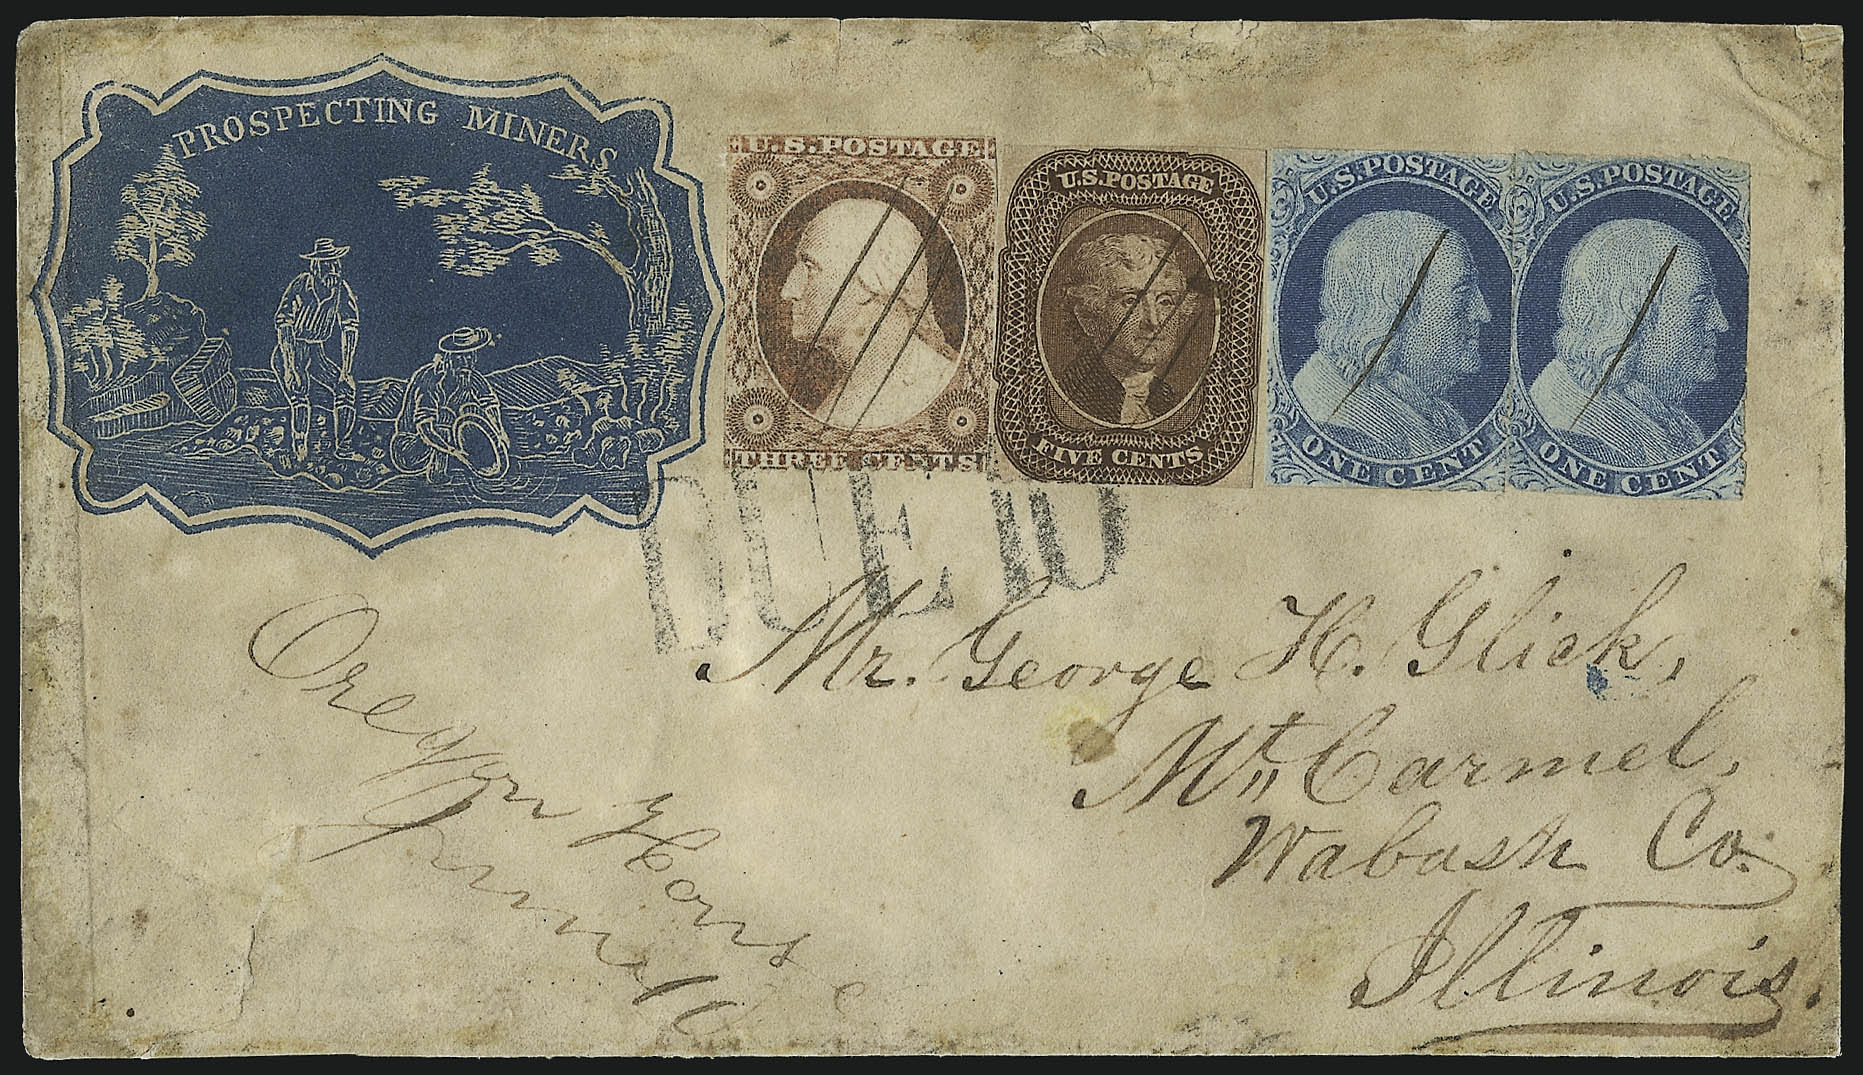 PROSPECTING MINERS
U.S. POSTAGE
THREE CENTS
U.S. POSTAGE
FIVE CENTS
U.S. POSTAGE
ONE CENT
U.S. POSTAGE
ONE CENT
DUE 10
Mr. George H. Glick,
Mt Carmel,
Wabash Co.
Illinois.
Oregon House